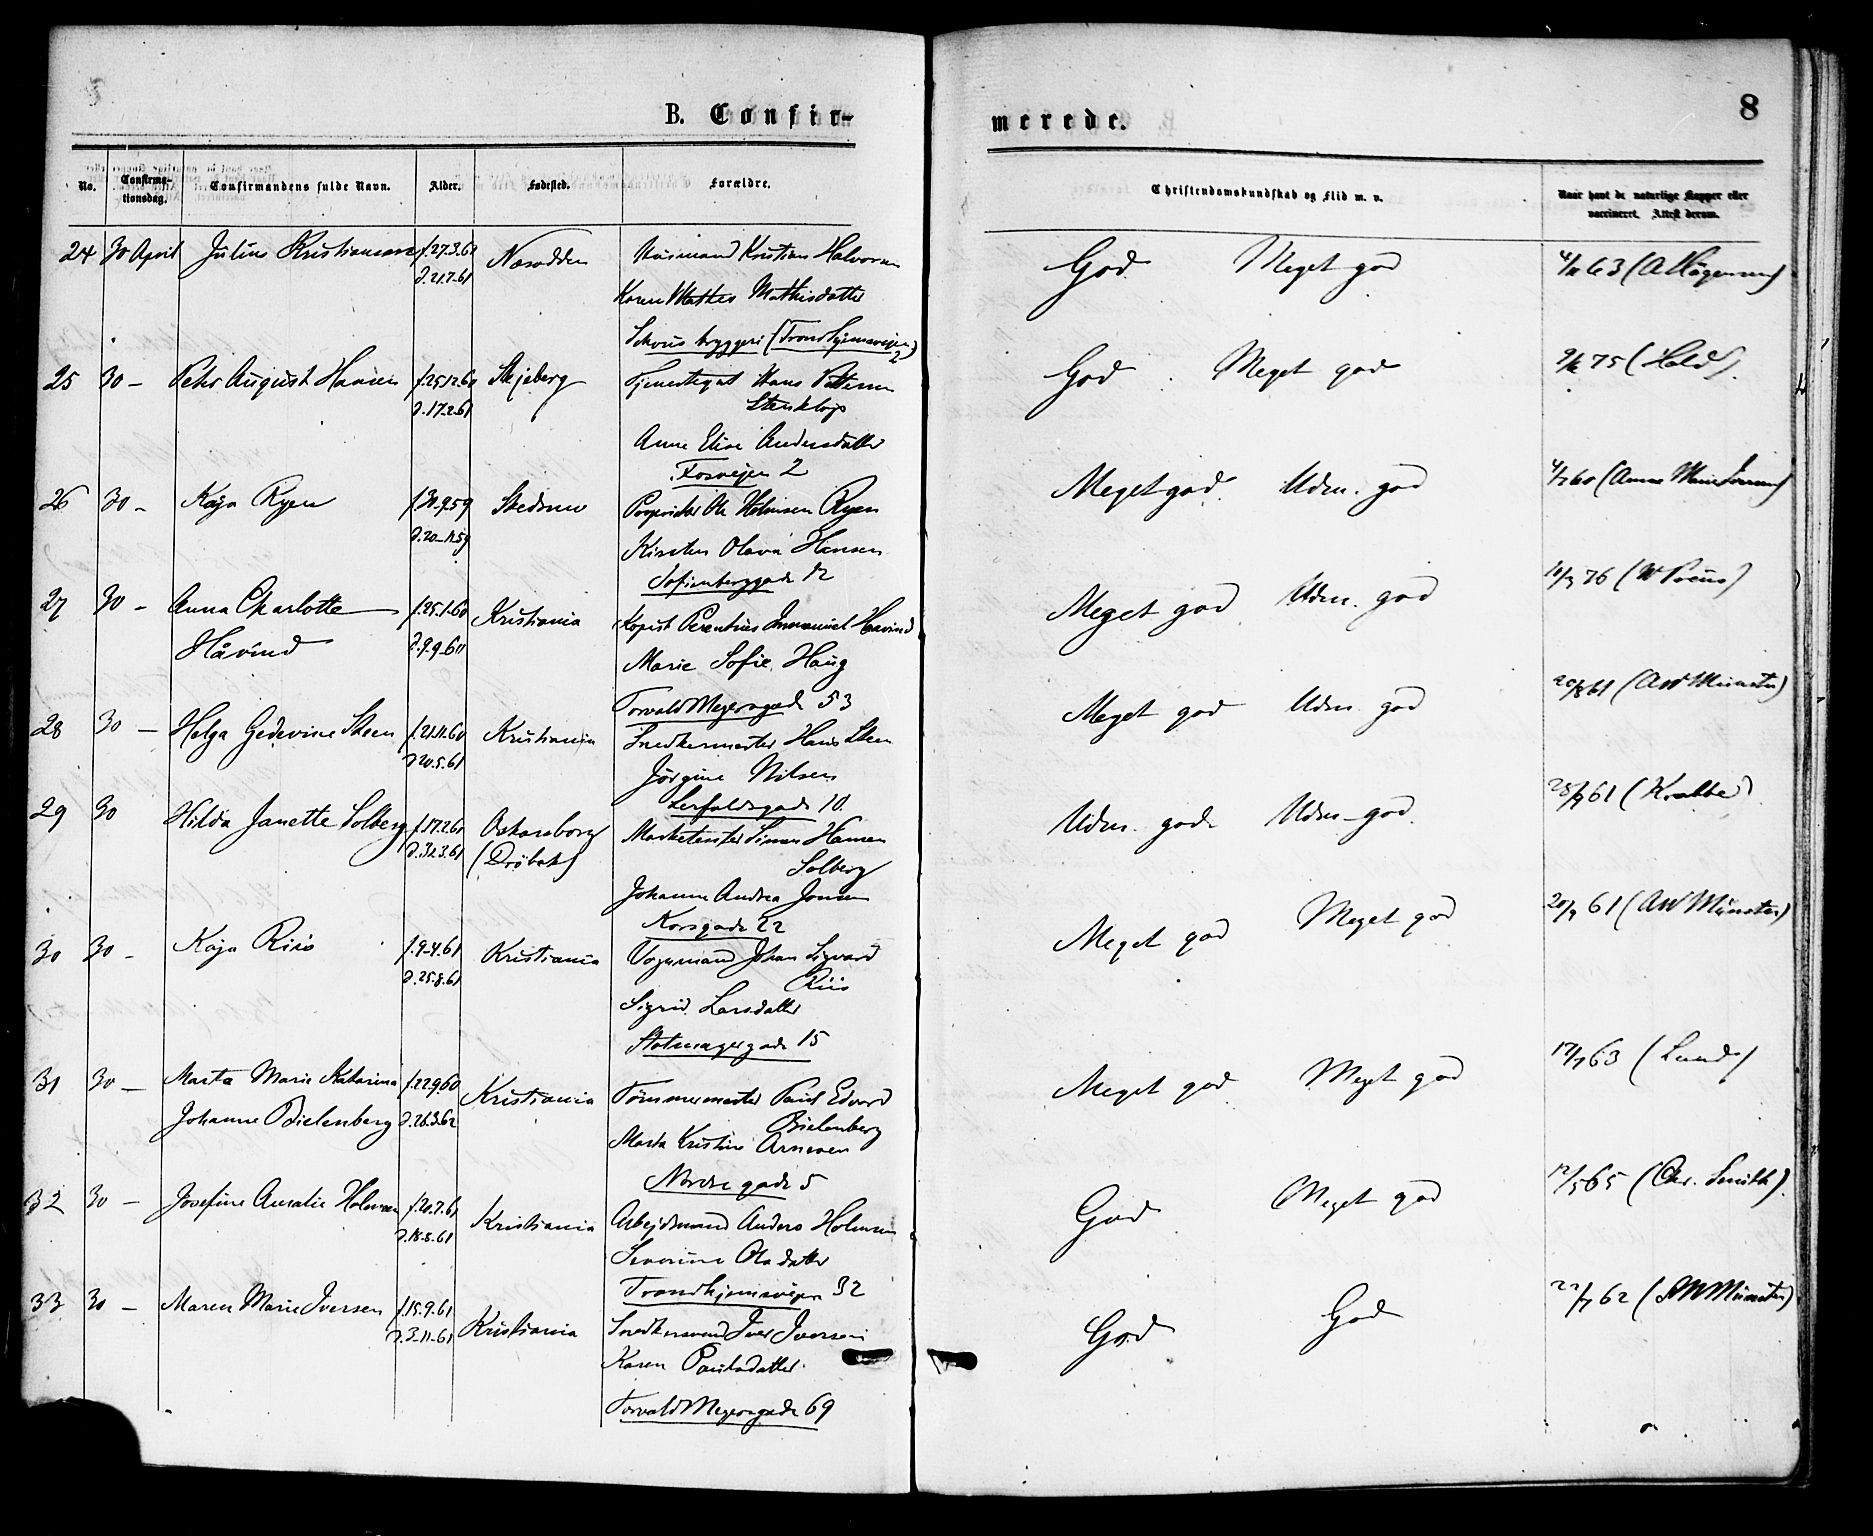 B. Confir-
merede.
8
No.
Confirma-
tionsdag.
Confirmandens fulde Navn.
Alder.
Fødested.
Forældre.
Christendomskundskab og Flid m. v.
Naar havt de naturlige Kopper eller
vaccineret. Attest derom.
24 30 April Julius Kristiansen f.27.3.61 Næsodden Husmand Kristian Halvorsen God Meget god
d.21.7.61
Karen Mathea Mathisdatter
Schous bryggeri (Trondhjemsveien
2)
25 30 — Peter August Hansen f.25.12.60 Skjeberg Tjenestegut Hans Pettersen God Meget god 75 (Hald).
d.17.2.61 Stenklops
Anne Elise Andersdatter
Fosveien 2
26 30 — Kaja Ryen f.30.9.59 Skedsmo Ole Helmersen Ryen Meget god. Udm. god 60 (Anna Marie
d.20.11.59
Kirsten Olava Hansen
Sofienberggade 12
27 30 — Anna Charlotte f.25.1.60 Kristiania Kopist Immanuel Haavind Meget god Udm. god 10/3 76
Håvind d.9.9.60
Marie Sofie Haug
Torvald Meyersgade 53
28 30 — Helga Gedevine Skeen f.21.11.60 Kristiania Snedkermester Hans Skeen Meget god Udm. god 20/8 61 (AW Münster)
d.20.5.61
Jörgine Nilsen
Lerfaldsgade 10.
29 30 Hilda Janette Solberg f.17.2.61 Oskarsborg Marketenter Simen Hansen Udm. god. Udm. god. 61 (Krabbe)
(Dröbak) Solberg
Johanne Andrea Jonsen
Korsgade 22
30 30 — Kaja Riis f.9.4.61 Kristiania Vognmand Johan Sigvard Meget god Meget god 20/9 61 (AW Münster)
d.25.8.61 Riis
Sigrid Larsdatter
Slotmagergade 15
31 30 — Marta Marie Katarina f.22.9.60 Kristiania Tömmermester Paul Edvard Meget god Meget god 17/7 63 (Lund)
Johanne Bielenberg d.26.3.62 Bielenberg
Marta Kristine Arnesen
Nordregade 5
32 30 — Josefine Amalie Holmsen f.20.7.61 Kristiania Arbejdsmand Anders Holmsen God Meget god 12/5 65 (Chr. Smith).
d.18.8.61
Severine Olsdatter
Trondhjemsveien 32
33 30 — Maren Marie Iversen f.15.9.61 Kristiania Snedkersvend Iver Iversen God. God 22/7 62 (AW Münster)
d.3.11.61
Karen Paulsdatter
Torvald Meyersgade 69